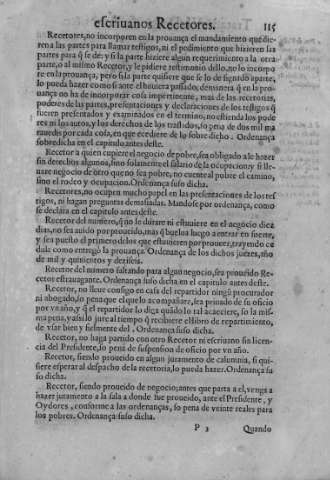 escriuanos Recetores. 115
Recetores, no incorporen en la prouança el mandamiento que die-
ren a las partes para llamar testigos, ni el pedimiento que hizieren las
partes para q̃ se de: y si la parte hiziere algun requerimiento a la otra
parte, o al mismo Recetor, y le pidiere testimonio dello, no lo incorpo
re en la prouança, pero si la parte quisiere que se lo de signado aparte,
lo pueda hazer como si ante el huuiera passado, de manera q̃ en la prou
ança no ha de incorporar cosa impertinente, mas de las recetorias,
poderes de las partes, presentaciones y declaraciones de los testigos q̃
fueren presentados y examinados en el termino, no estienda los pode
res ni los autos, y los derechos de los traslados, so pena de dos mil ma
rauedis por cada cosa, en que excediere de lo sobre dicho. Ordenança
sobredicha en el capitulo antes deste.
Recetor a quien cupiere el negocio de pobre, sea obligado a le hazer
sin derechos algunos, sino solamente el salario de la ocupacion: y si lle-
uare negocio de otro que no sea pobre, no cuente al pobre el camino,
sino el rodeo y ocupacion. Ordenança suso dicha.
Recetores, no ocupen mucho papel en las presentaciones de los tes
tigos, ni hagan preguntas demasiadas. Mandose por ordenança, como
se declara en el capitulo antes deste.
Recetor del numero, q̃ no se durare ni estuuiere en el negocio diez
dias, no sea auido por proueido, mas q̃ buelua luego a entrar en suerte,
y sea puesto el primero de los que estuuieren por proueer, trayendo ce
dula como entregó la prouança. Ordenança de los dichos juezes, año
de mil y quinientos y deziseis.
Recetor del numero faltando para algun negocio, sea proueido Re-
cetor extrauagante. Ordenança suso dicha en el capitulo antes deste.
Recetor, no lleue consigo en casa del repartidor ningũ procurador
ni abogado, so pena que el que lo acompañare, sea priuado de su oficio
por vn año, y q̃ el repartidor lo diga quãdo lo tal acaeciere, so la mis-
ma pena, y assi lo jure al tiempo q̃ recibiere el libro de repartimiento,
de vsar bien y fielmente del. Ordenança suso dicha.
Recetor, no haga partido con otro Recetor ni escriuano sin licen-
cia del Presidente, so pena de suspension de oficio por vn año.
Recetor, siendo proueido en algun juramento de calumnia, si qui-
siere esperar al despacho de la recetoria, lo pueda hazer. Ordenança su
so dicha.
Recetor, siendo proueido de negocio; antes que parta a el, venga a
hazer juramento a la sala a donde fue proueido, ante el Presidente, y
Oydores, conforme a las ordenanças, so pena de veinte reales para
los pobres. Ordenança suso dicha.
P 3 Quando